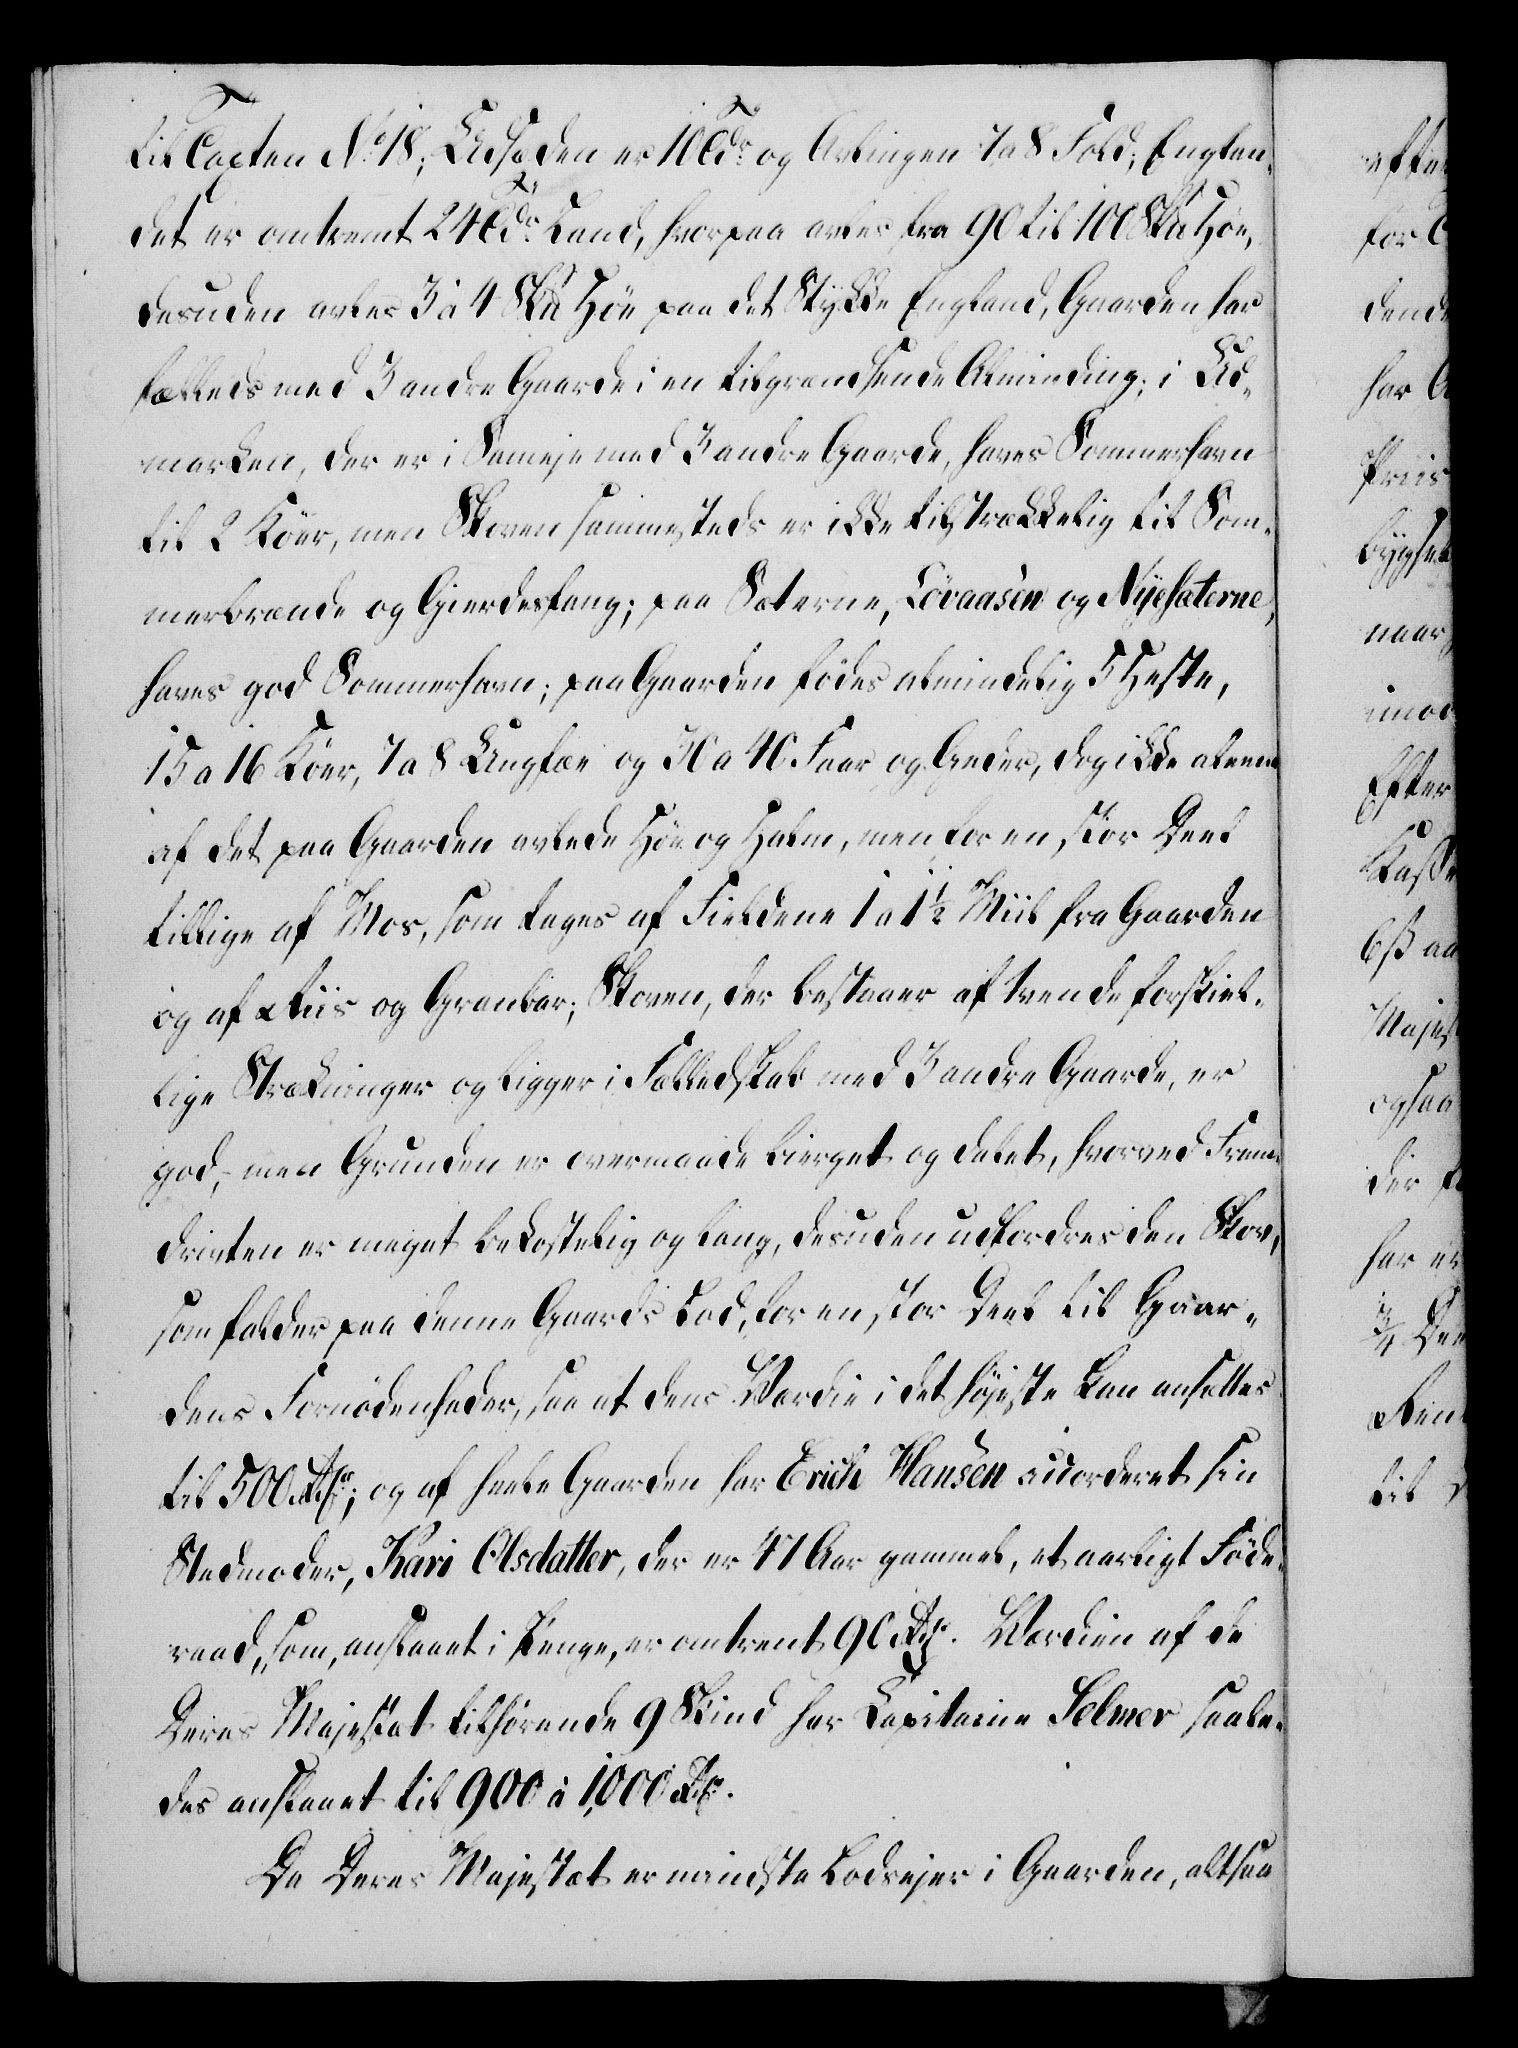 til Taxten No 18; Udsæden er 10 Tdr og Avlingen 7 a 8 Fold; Englan-
det er omtrent 24 Tdr Land, hvorpaa avles fra 90 til 100 Sk℔ Høe,
desuden avles 3 a 4 Sk℔ Høe paa det Stykke England, Gaarden har
fælleds med 3 andre Gaarde i en tilgrændsende Alminding; i Ud-
marken, der er i Sameje med 3 andre Gaarde, haves Sommerhavn
til 2 Køer, men Skoven sammesteds er ikke tilstrækkelig til Som-
merbrænde og Gierdesfang; paa Sæterne, Løvaasen og Nyesæterne,
haves god Sommerhavn; paa Gaarden fødes almindelig 5 Heste,
15 a 16 Køer, 7 a 8 Ungfæe og 30 a 40 Faar og Geder, dog ikke alene
af det paa Gaarden avlede Høe og Halm, men for en stor Deel
tillige af Mos, som tages af Fieldene 1 a 1½ Miil fra Gaarden
og af Riis og Granbar; Skoven, der bestaaer af tvende forskiel-
lige Strækninger og ligger i Fælledskab med 3 andre Gaarde, er
god, men Grunden er overmaade bierget og dalet, hvorved Frem-
driften er meget bekostelig og lang, desuden udfordres den Skov,
som falder paa denne Gaards Lod, for en stor Deel til Gaar-
dens Fornødenheder, saa at dens Værdie i det højeste kan ansættes
til 500 Rdr; og af heele Gaarden har Erich Hansen accorderet sin
Stedmoder, Kari Olsdatter, der er 41 Aar gammel, et aarligt Føde-
raad, som, anslaaet i Penge, er omtrent 90 Rdr. Værdien af de
Deres Majestæt tilhørende 9 Skind har Capitaine Selmer saale-
des anslaaet til 900 à 1,000 Rdr.
Da Deres Majestæt er mindste Lodsejer i Gaarden, altsaa